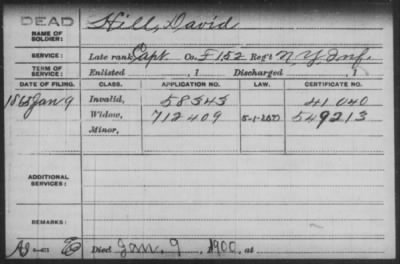 DEAD
NAME OF SOLDIER: Hill, David
SERVICE: Late rank Capt Co. F 152 Reg't N Y Inf.
TERM OF SERVICE: Enlisted , 1 Discharged , 1
DATE OF FILING. CLASS. APPLICATION NO. LAW. CERTIFICATE NO.
1865 Jan 9 Invalid, 58543 41040
Widow, 712409 549213
Minor,
ADDITIONAL SERVICES:
REMARKS:
Died Jan. 9, 1900, at